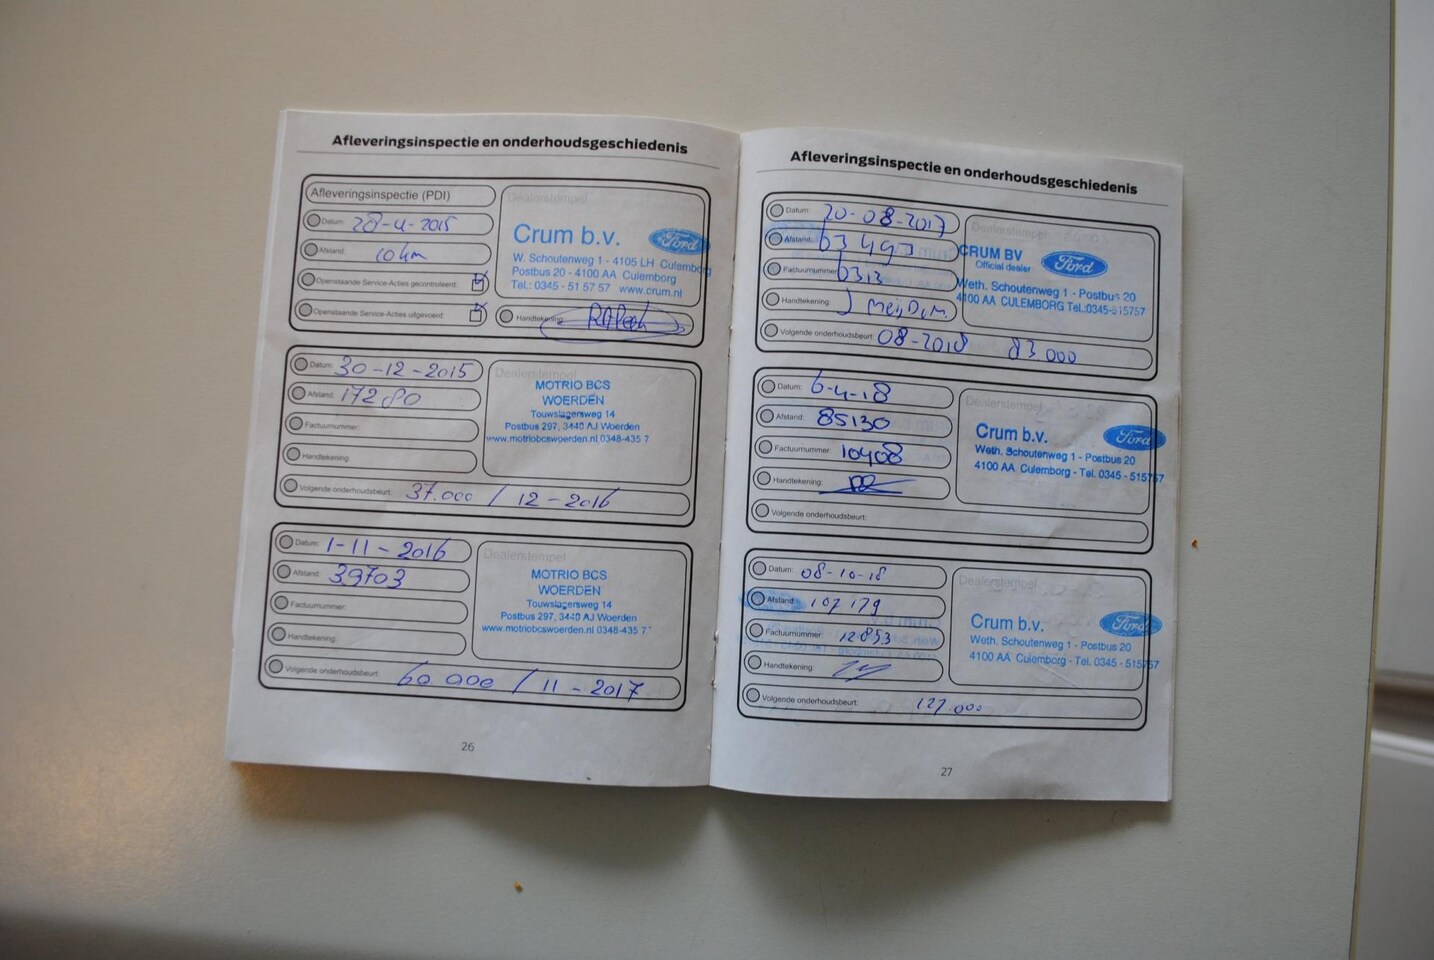 Afleveringsinspectie en onderhoudsgeschiedenis
Afleveringsinspectie (PDI)
Datum: 28-4-2015
Afstand: 10 km
Openstaande Service-Acties gecontroleerd:
Openstaande Service-Acties uitgevoerd:
Dealerstempel
Crum b.v. Ford
W. Schoutenweg 1 - 4105 LH Culemborg
Postbus 20 - 4100 AA Culemborg
Tel.: 0345 - 51 57 57 www.crum.nl
Handtekening:
Datum: 30-12-2015
Afstand: 17280
Factuurnummer:
Handtekening
Volgende onderhoudsbeurt: 37.000 / 12-2016
Dealerstempel
MOTRIO BCS
WOERDEN
Touwslagersweg 14
Postbus 297, 3440 AJ Woerden
www.motriobcswoerden.nl 0348-435 7
Datum: 1-11-2016
Afstand: 39703
Factuurnummer:
Handtekening:
Volgende onderhoudsbeurt: 60 000 / 11-2017
Dealerstempel
MOTRIO BCS
WOERDEN
Touwslagersweg 14
Postbus 297, 3440 AJ Woerden
www.motriobcswoerden.nl 0348-435 7
26
Afleveringsinspectie en onderhoudsgeschiedenis
Datum: 20-08-2017
Afstand: 63493
Factuurnummer: 6313
Handtekening:
Volgende onderhoudsbeurt: 08-2018 83.000
Dealerstempel
CRUM BV
Official dealer Ford
Weth. Schoutenweg 1 - Postbus 20
4100 AA CULEMBORG Tel.:0345-515757
Datum: 6-4-18
Afstand: 85130
Factuurnummer: 10408
Handtekening:
Volgende onderhoudsbeurt:
Dealerstempel
Crum b.v. Ford
Weth. Schoutenweg 1 - Postbus 20
4100 AA Culemborg - Tel. 0345 - 515757
Datum: 08-10-18
Afstand: 107179
Factuurnummer: 12853
Handtekening:
Volgende onderhoudsbeurt: 127.000
Dealerstempel
Crum b.v. Ford
Weth. Schoutenweg 1 - Postbus 20
4100 AA Culemborg - Tel. 0345 - 515757
27